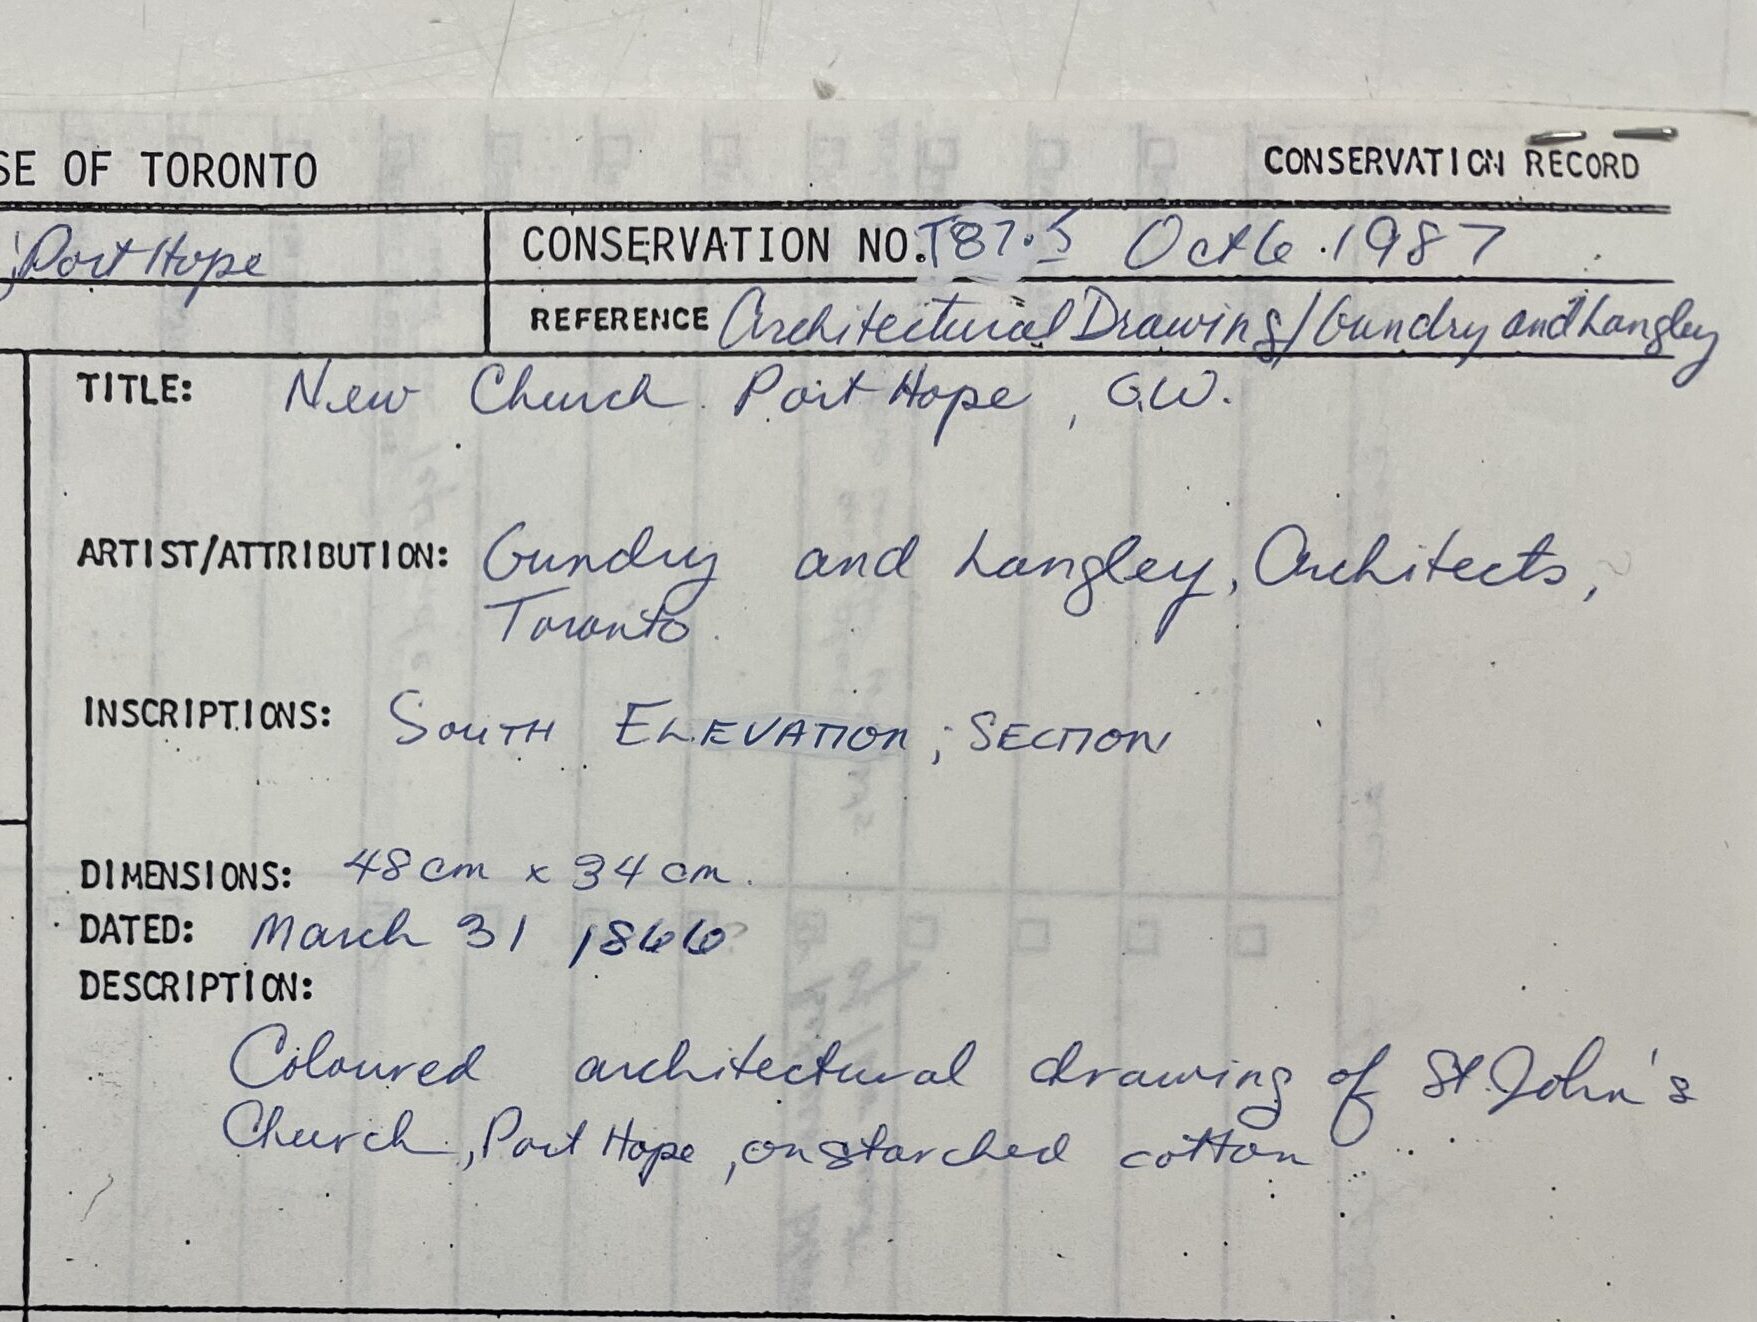 SE OF TORONTO
CONSERVATION RECORD
, Port Hope
CONSERVATION NO. T87.5 Oct 6. 1987
REFERENCE Architectural Drawing/Gundry and Langley
TITLE: New Church. Port Hope, C.W.
ARTIST/ATTRIBUTION: Gundry and Langley, Architects,
Toronto.
INSCRIPTIONS: SOUTH ELEVATION; SECTION
DIMENSIONS: 48 cm x 34 cm.
DATED: March 31 1866?
DESCRIPTION:
Coloured architectural drawing of St. John's
Church, Port Hope, on starched cotton